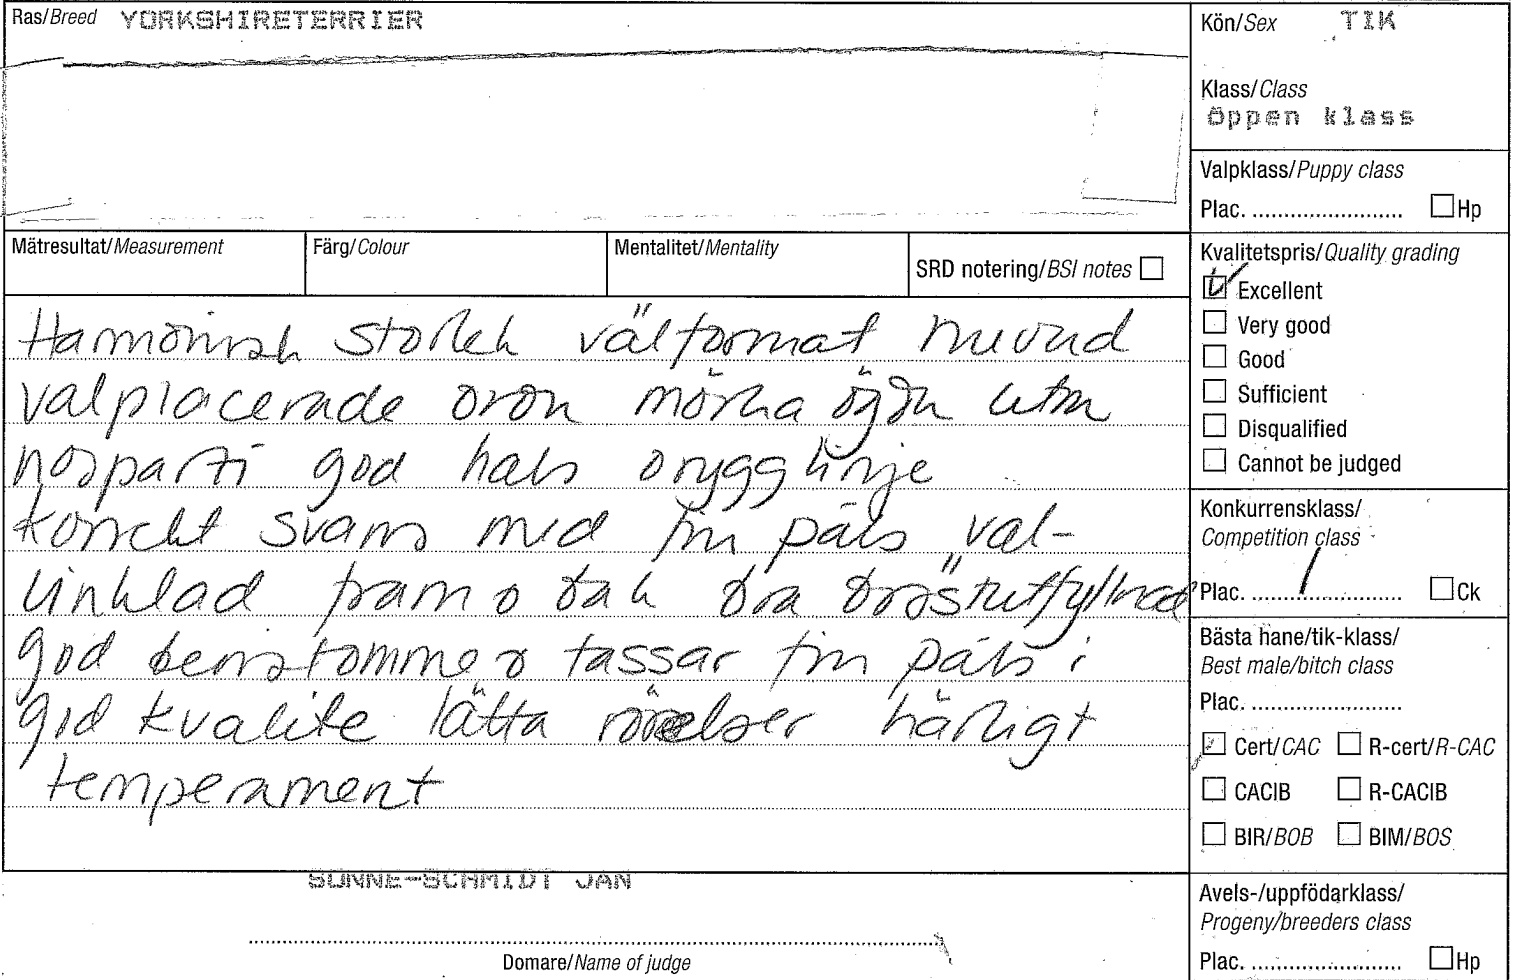 Ras/Breed YORKSHIRETERRIER
Kön/Sex TIK
Klass/Class
Öppen klass
Valpklass/Puppy class
Plac. ........................ Hp
Mätresultat/Measurement
Färg/Colour
Mentalitet/Mentality
SRD notering/BSI notes
Kvalitetspris/Quality grading
Excellent
Very good
Good
Sufficient
Disqualified
Cannot be judged
Harmonisk storlek välformat huvud
välplacerade öron mörka ögon
nosparti god hals o rygglinje
korrekt svans med fin päls väl-
vinklad fram o bak bra bröstutfyllnad
god benstomme o tassar fin päls i
god kvalite lätta rörelser härligt
temperament
Konkurrensklass/
Competition class
Plac. ........1............... Ck
Bästa hane/tik-klass/
Best male/bitch class
Plac. ........................
Cert/CAC R-cert/R-CAC
CACIB R-CACIB
BIR/BOB BIM/BOS
SONNE-SCHMIDT JAN
Domare/Name of judge
Avels-/uppfödarklass/
Progeny/breeders class
Plac. ........................ Hp